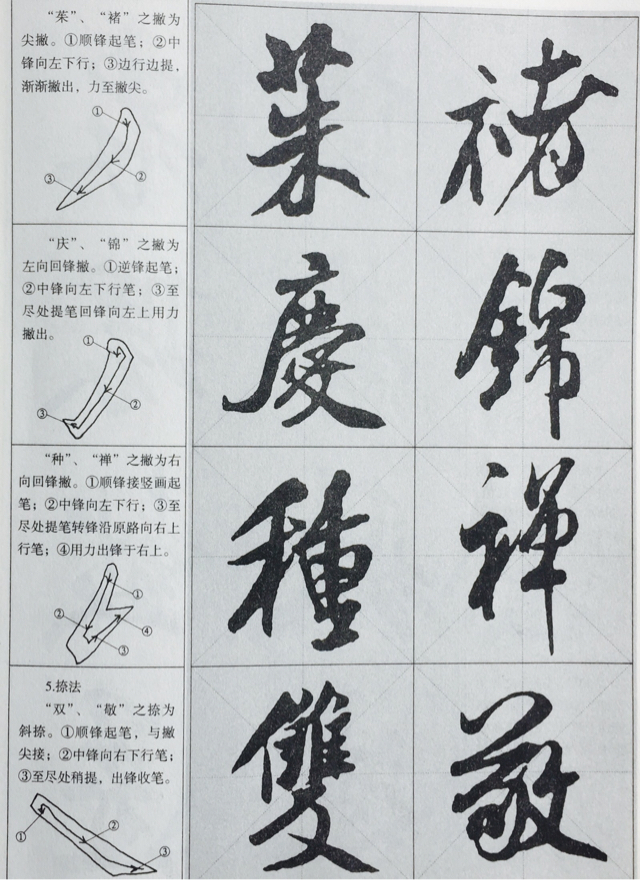 “茱”、“褚”之撇为
尖撇。①顺锋起笔；②中
锋向左下行；③边行边提，
渐渐撇出，力至撇尖。
①
②
③
茱 褚
“庆”、“锦”之撇为
左向回锋撇。①逆锋起笔；
②中锋向左下行笔；③至
尽处提笔回锋向左上用力
撇出。
①
②
③
慶 錦
“种”、“禅”之撇为右
向回锋撇。①顺锋接竖画起
笔；②中锋向左下行；③至
尽处提笔转锋沿原路向右上
行笔；④用力出锋于右上。
①
②
④
③
種 禅
5.捺法
“双”、“敬”之捺为
斜捺。①顺锋起笔，与撇
尖接；②中锋向右下行笔；
③至尽处稍提，出锋收笔。
①
②
③
雙 敬